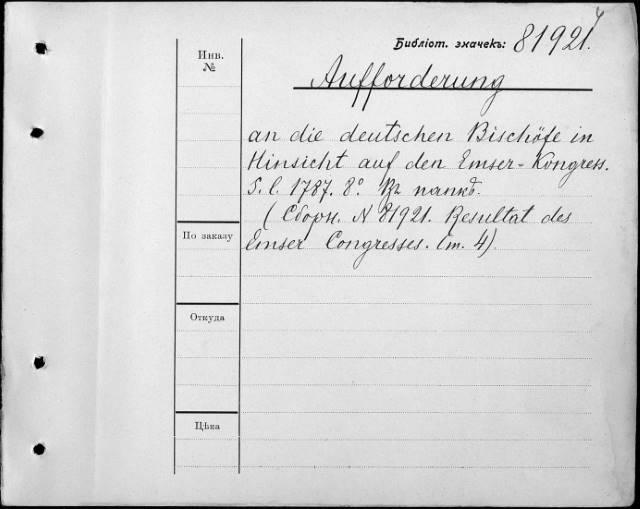 Библіот. значекъ: 81921.4
Инв.
№
Aufforderung
an die deutschen Bischöfe in
Hinsicht auf den Emser-Kongress.
S. l. 1787. 8º. Въ папкѣ.
(Сборн. N 81921. Resultat des
По заказу
Emser Congresses. (т. 4).
Откуда
Цѣна